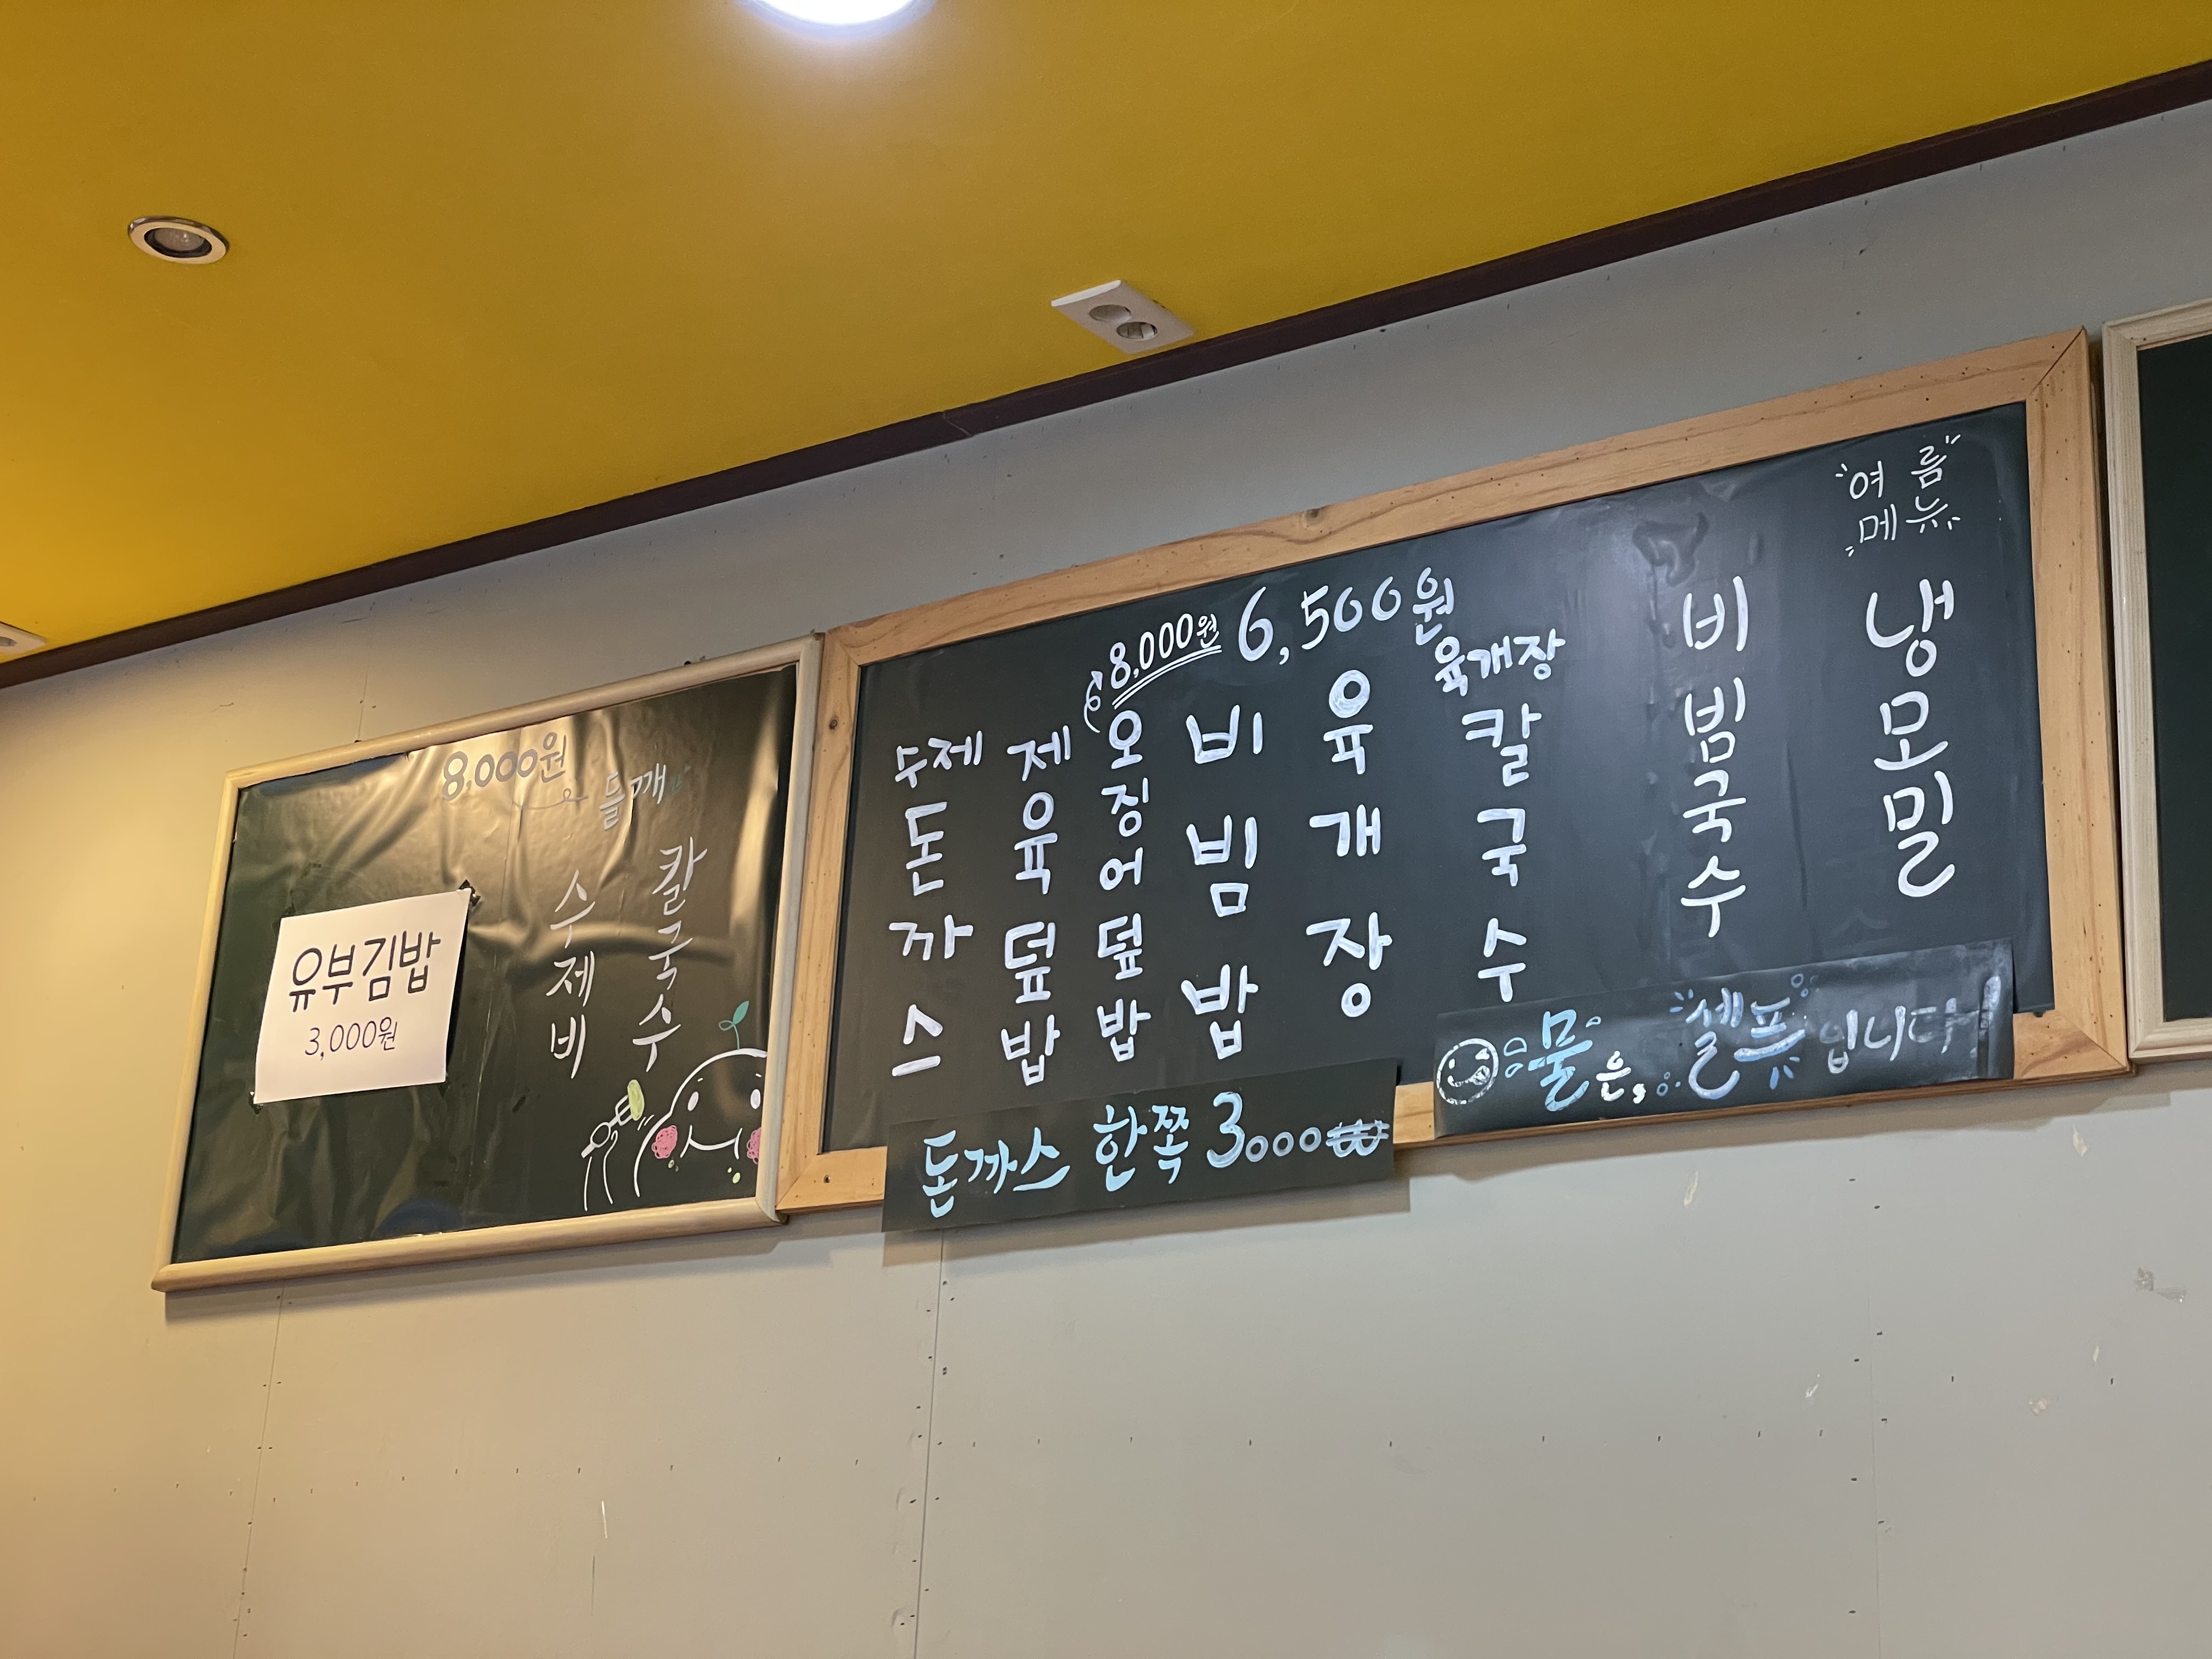 8,000원
들깨
칼국수
수제비
유부김밥
3,000원
8,000원
6,500원
수제
돈까스
제육덮밥
오징어덮밥
비빔밥
육개장
육개장
칼국수
비빔국수
여름
메뉴
냉모밀
돈까스 한쪽 3000₩
물은, 셀프입니다!